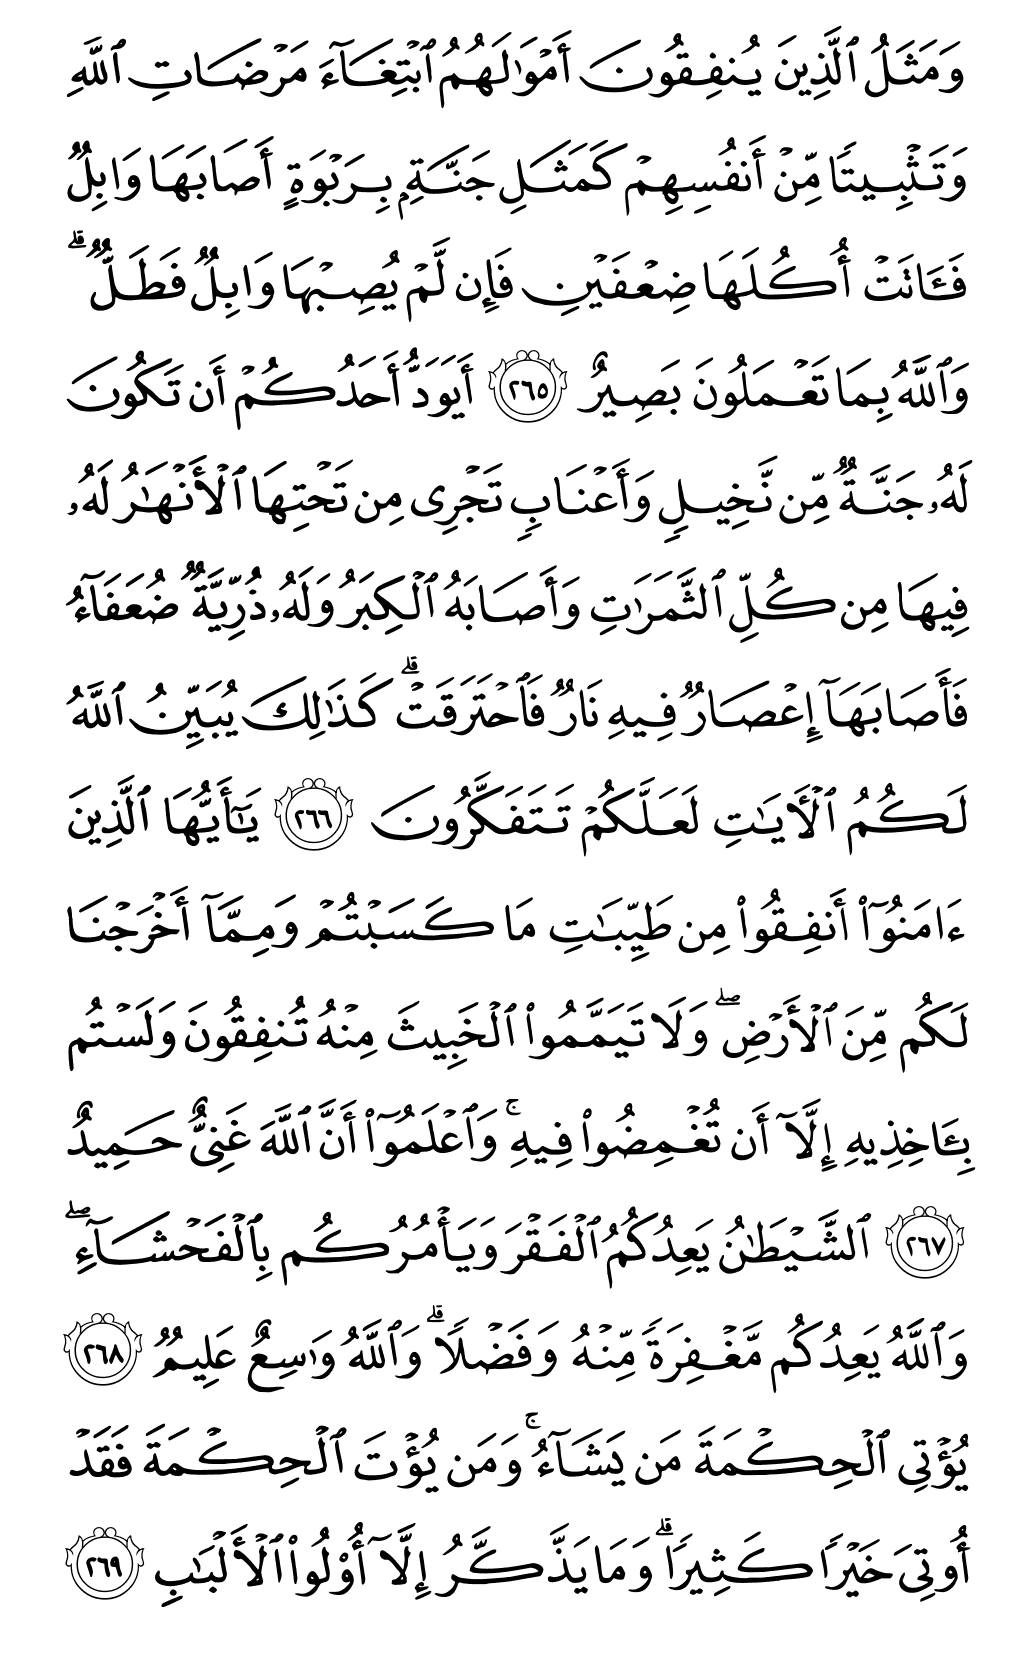 وَمَثَلُ ٱلَّذِينَ يُنفِقُونَ أَمْوَٰلَهُمُ ٱبْتِغَآءَ مَرْضَاتِ ٱللَّهِ
وَتَثْبِيتًا مِّنْ أَنفُسِهِمْ كَمَثَلِ جَنَّةٍۭ بِرَبْوَةٍ أَصَابَهَا وَابِلٌ
فَـَٔاتَتْ أُكُلَهَا ضِعْفَيْنِ فَإِن لَّمْ يُصِبْهَا وَابِلٌ فَطَلٌّ ۗ
وَٱللَّهُ بِمَا تَعْمَلُونَ بَصِيرٌ ٢٦٥ أَيَوَدُّ أَحَدُكُمْ أَن تَكُونَ
لَهُۥ جَنَّةٌ مِّن نَّخِيلٍ وَأَعْنَابٍ تَجْرِى مِن تَحْتِهَا ٱلْأَنْهَٰرُ لَهُۥ
فِيهَا مِن كُلِّ ٱلثَّمَرَٰتِ وَأَصَابَهُ ٱلْكِبَرُ وَلَهُۥ ذُرِّيَّةٌ ضُعَفَآءُ
فَأَصَابَهَآ إِعْصَارٌ فِيهِ نَارٌ فَٱحْتَرَقَتْ ۗ كَذَٰلِكَ يُبَيِّنُ ٱللَّهُ
لَكُمُ ٱلْـَٔايَٰتِ لَعَلَّكُمْ تَتَفَكَّرُونَ ٢٦٦ يَٰٓأَيُّهَا ٱلَّذِينَ
ءَامَنُوٓا۟ أَنفِقُوا۟ مِن طَيِّبَٰتِ مَا كَسَبْتُمْ وَمِمَّآ أَخْرَجْنَا
لَكُم مِّنَ ٱلْأَرْضِ ۖ وَلَا تَيَمَّمُوا۟ ٱلْخَبِيثَ مِنْهُ تُنفِقُونَ وَلَسْتُم
بِـَٔاخِذِيهِ إِلَّآ أَن تُغْمِضُوا۟ فِيهِ ۚ وَٱعْلَمُوٓا۟ أَنَّ ٱللَّهَ غَنِىٌّ حَمِيدٌ
٢٦٧ ٱلشَّيْطَٰنُ يَعِدُكُمُ ٱلْفَقْرَ وَيَأْمُرُكُم بِٱلْفَحْشَآءِ ۖ
وَٱللَّهُ يَعِدُكُم مَّغْفِرَةً مِّنْهُ وَفَضْلًا ۗ وَٱللَّهُ وَٰسِعٌ عَلِيمٌ ٢٦٨
يُؤْتِى ٱلْحِكْمَةَ مَن يَشَآءُ ۚ وَمَن يُؤْتَ ٱلْحِكْمَةَ فَقَدْ
أُوتِىَ خَيْرًا كَثِيرًا ۗ وَمَا يَذَّكَّرُ إِلَّآ أُو۟لُوا۟ ٱلْأَلْبَٰبِ ٢٦٩